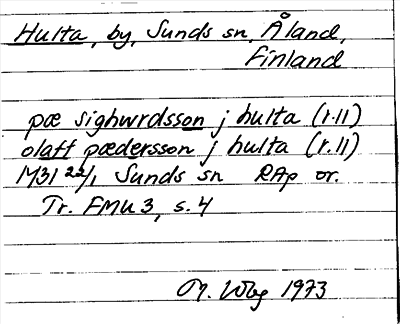 Hulta, by, Sunds sn, Åland,
Finland
pæ sighwrdsson j hulta (r.11)
olaff pædersson j hulta (r.11)
1431 22/1 Sunds sn RAp or.
Tr. FMU 3, s. 4
M. 1973